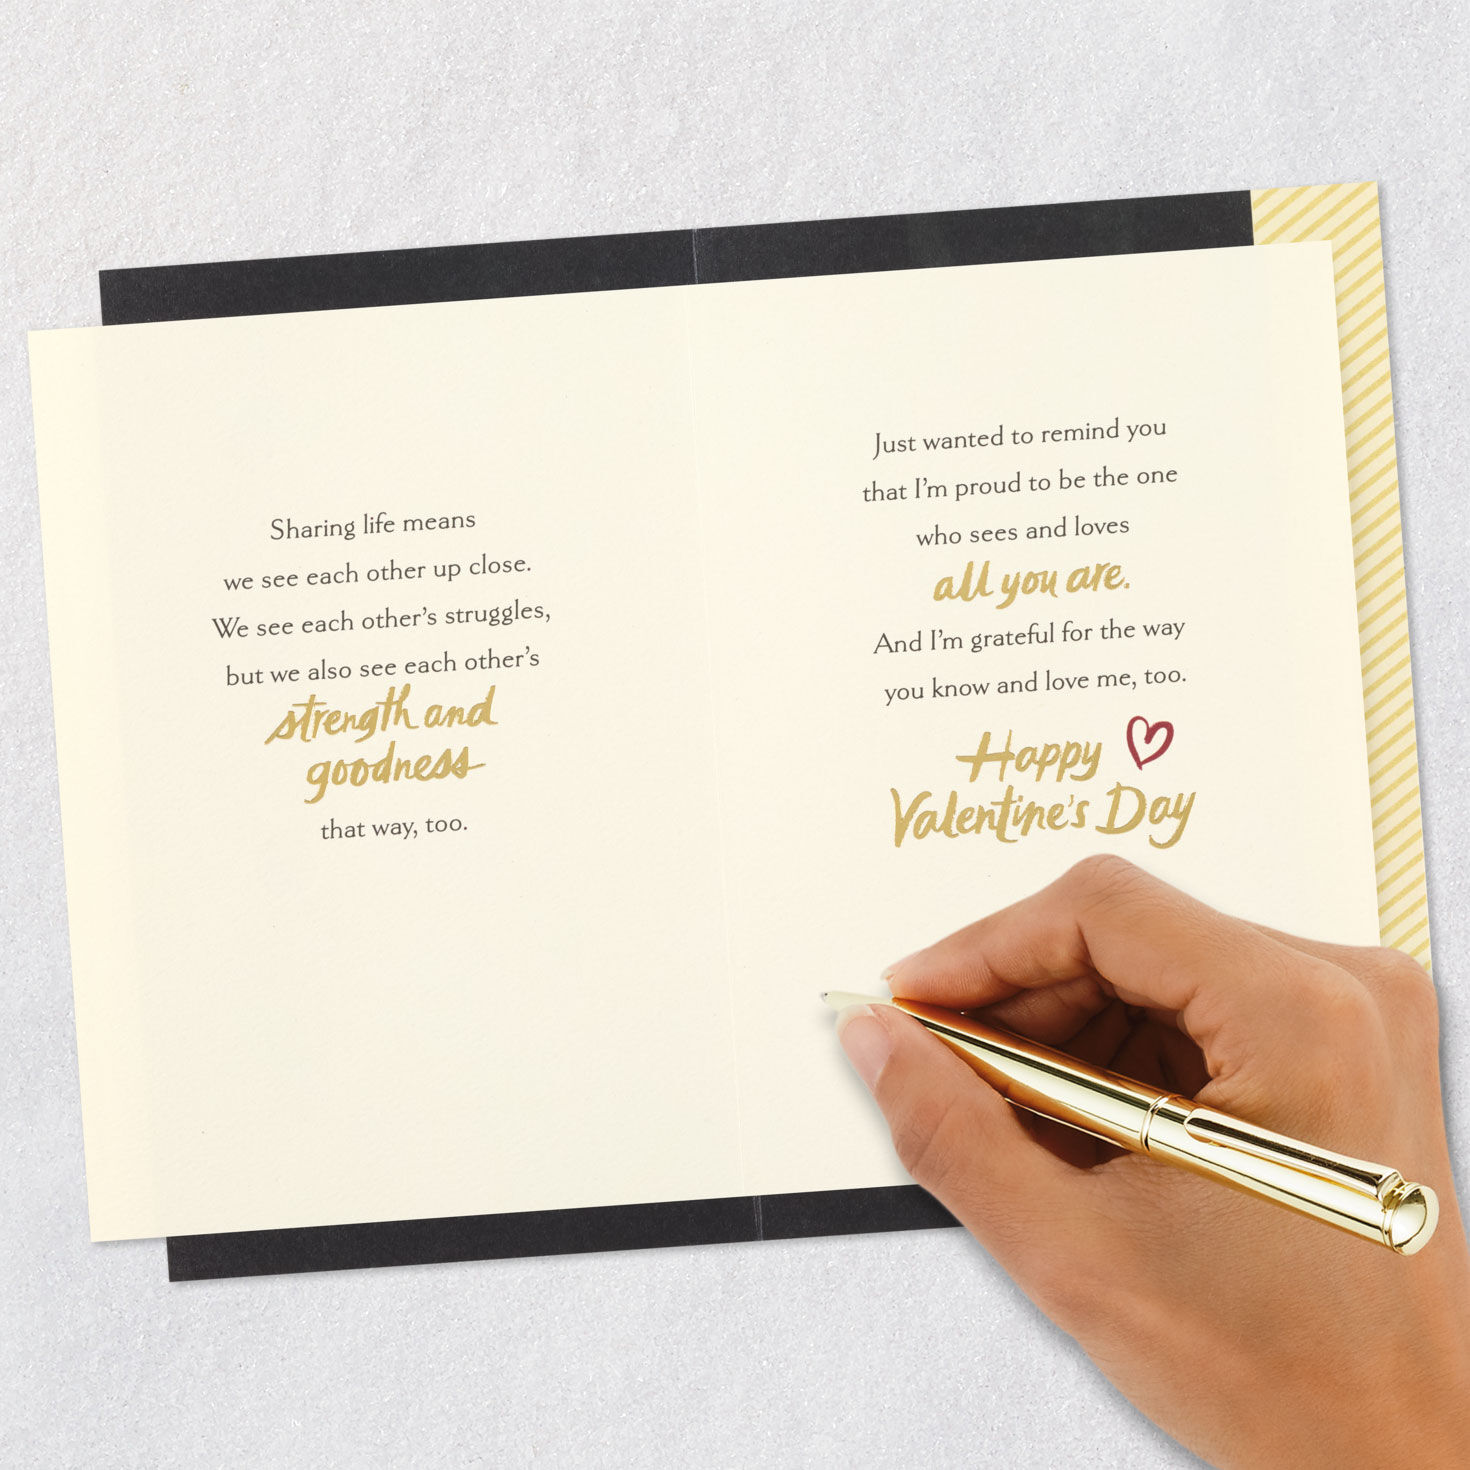 Sharing life means
we see each other up close.
We see each other's struggles,
but we also see each other's
strength and
goodness
that way, too.
Just wanted to remind you
that I'm proud to be the one
who sees and loves
all you are.
And I'm grateful for the way
you know and love me, too.
Happy
Valentine's Day